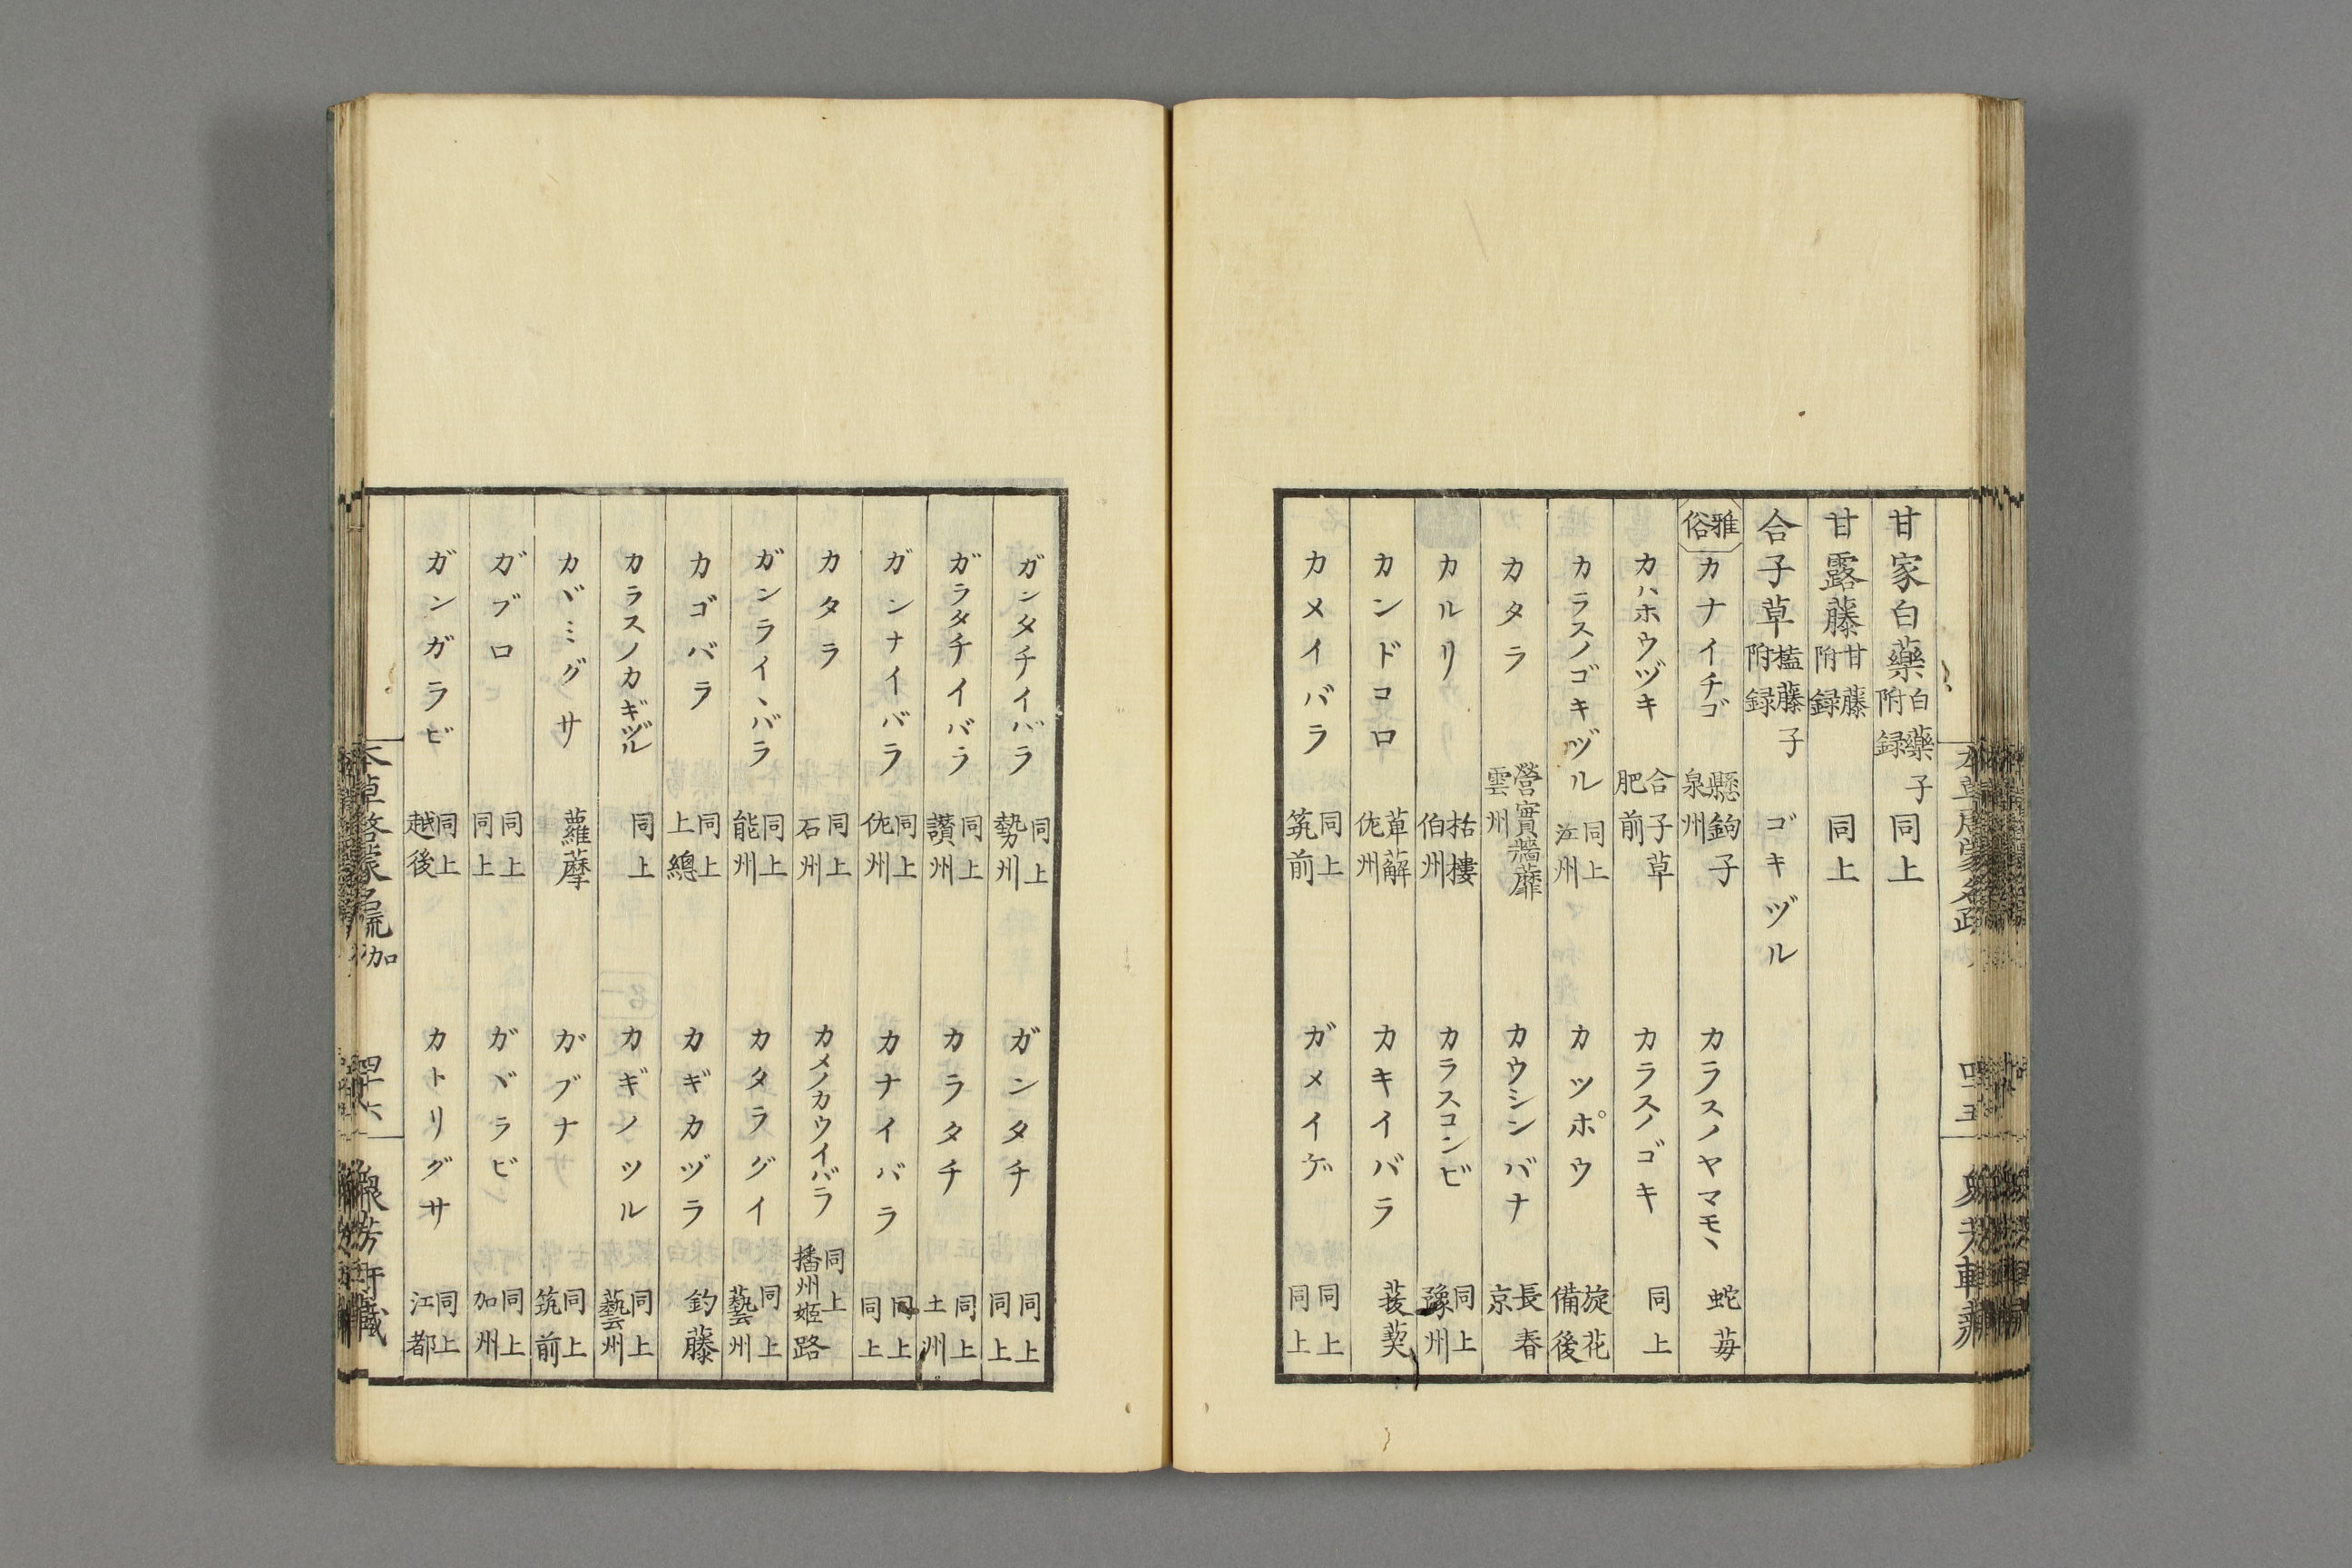 甘家白藥 白藥子附録 同上
甘露藤 甘藤附録 同上
合子草 榼藤子附録 ゴキヅル
雅俗 カナイチゴ 懸鉤子 泉州 カラスノヤマモヽ 蛇苺
カハホウヅキ 合子草 肥前 カラスノゴキ 同上
カラスノゴキヅル 同上 江州 カツポウ 旋花 備後
カタラ 營實牆蘼 雲州 カウシンバナ 長春 京
カルリ 栝樓 伯州 カラスコンビ 同上 豫州
カンドコロ 萆薢 佐州 カキイバラ 菝葜
カメイバラ 同上 筑前 ガメイゲ 同上 同上
ガンタチイバラ 同上 勢州 ガンタチ 同上 同上
ガラタチイバラ 同上 讃州 カラタチ 同上 土州
ガンナイバラ 同上 佐州 カナイバラ 同上 同上
カタラ 同上 石州 カメノカウイバラ 同上 播州姫路
ガンライヽバラ 同上 能州 カタラグイ 同上 藝州
カゴバラ 同上 上總 カギカヅラ 釣藤
カラスノカギヅル 同上 カギノツル 同上 藝州
カヾミグサ 蘿藦 ガブナ 同上 筑前
ガブロ 同上 同上 ガヾラビ 同上 加州
ガンガラビ 同上 越後 カトリグサ 同上 江都
本草啓蒙名疏 加 四十六 衆芳軒藏